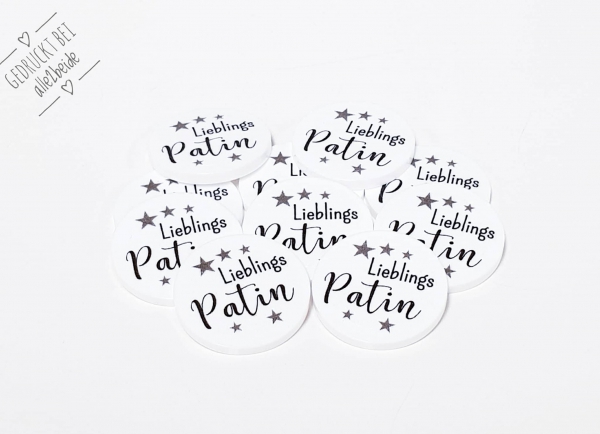 GEDRUCKT BEI
alle2beide
Lieblings
Patin
Lieblings
Patin
Lieblings
Lieblings
Lieblings
Patin
Lieblings
Patin
Lieblings
Patin
Lieblings
Patin
Lieblings
Patin